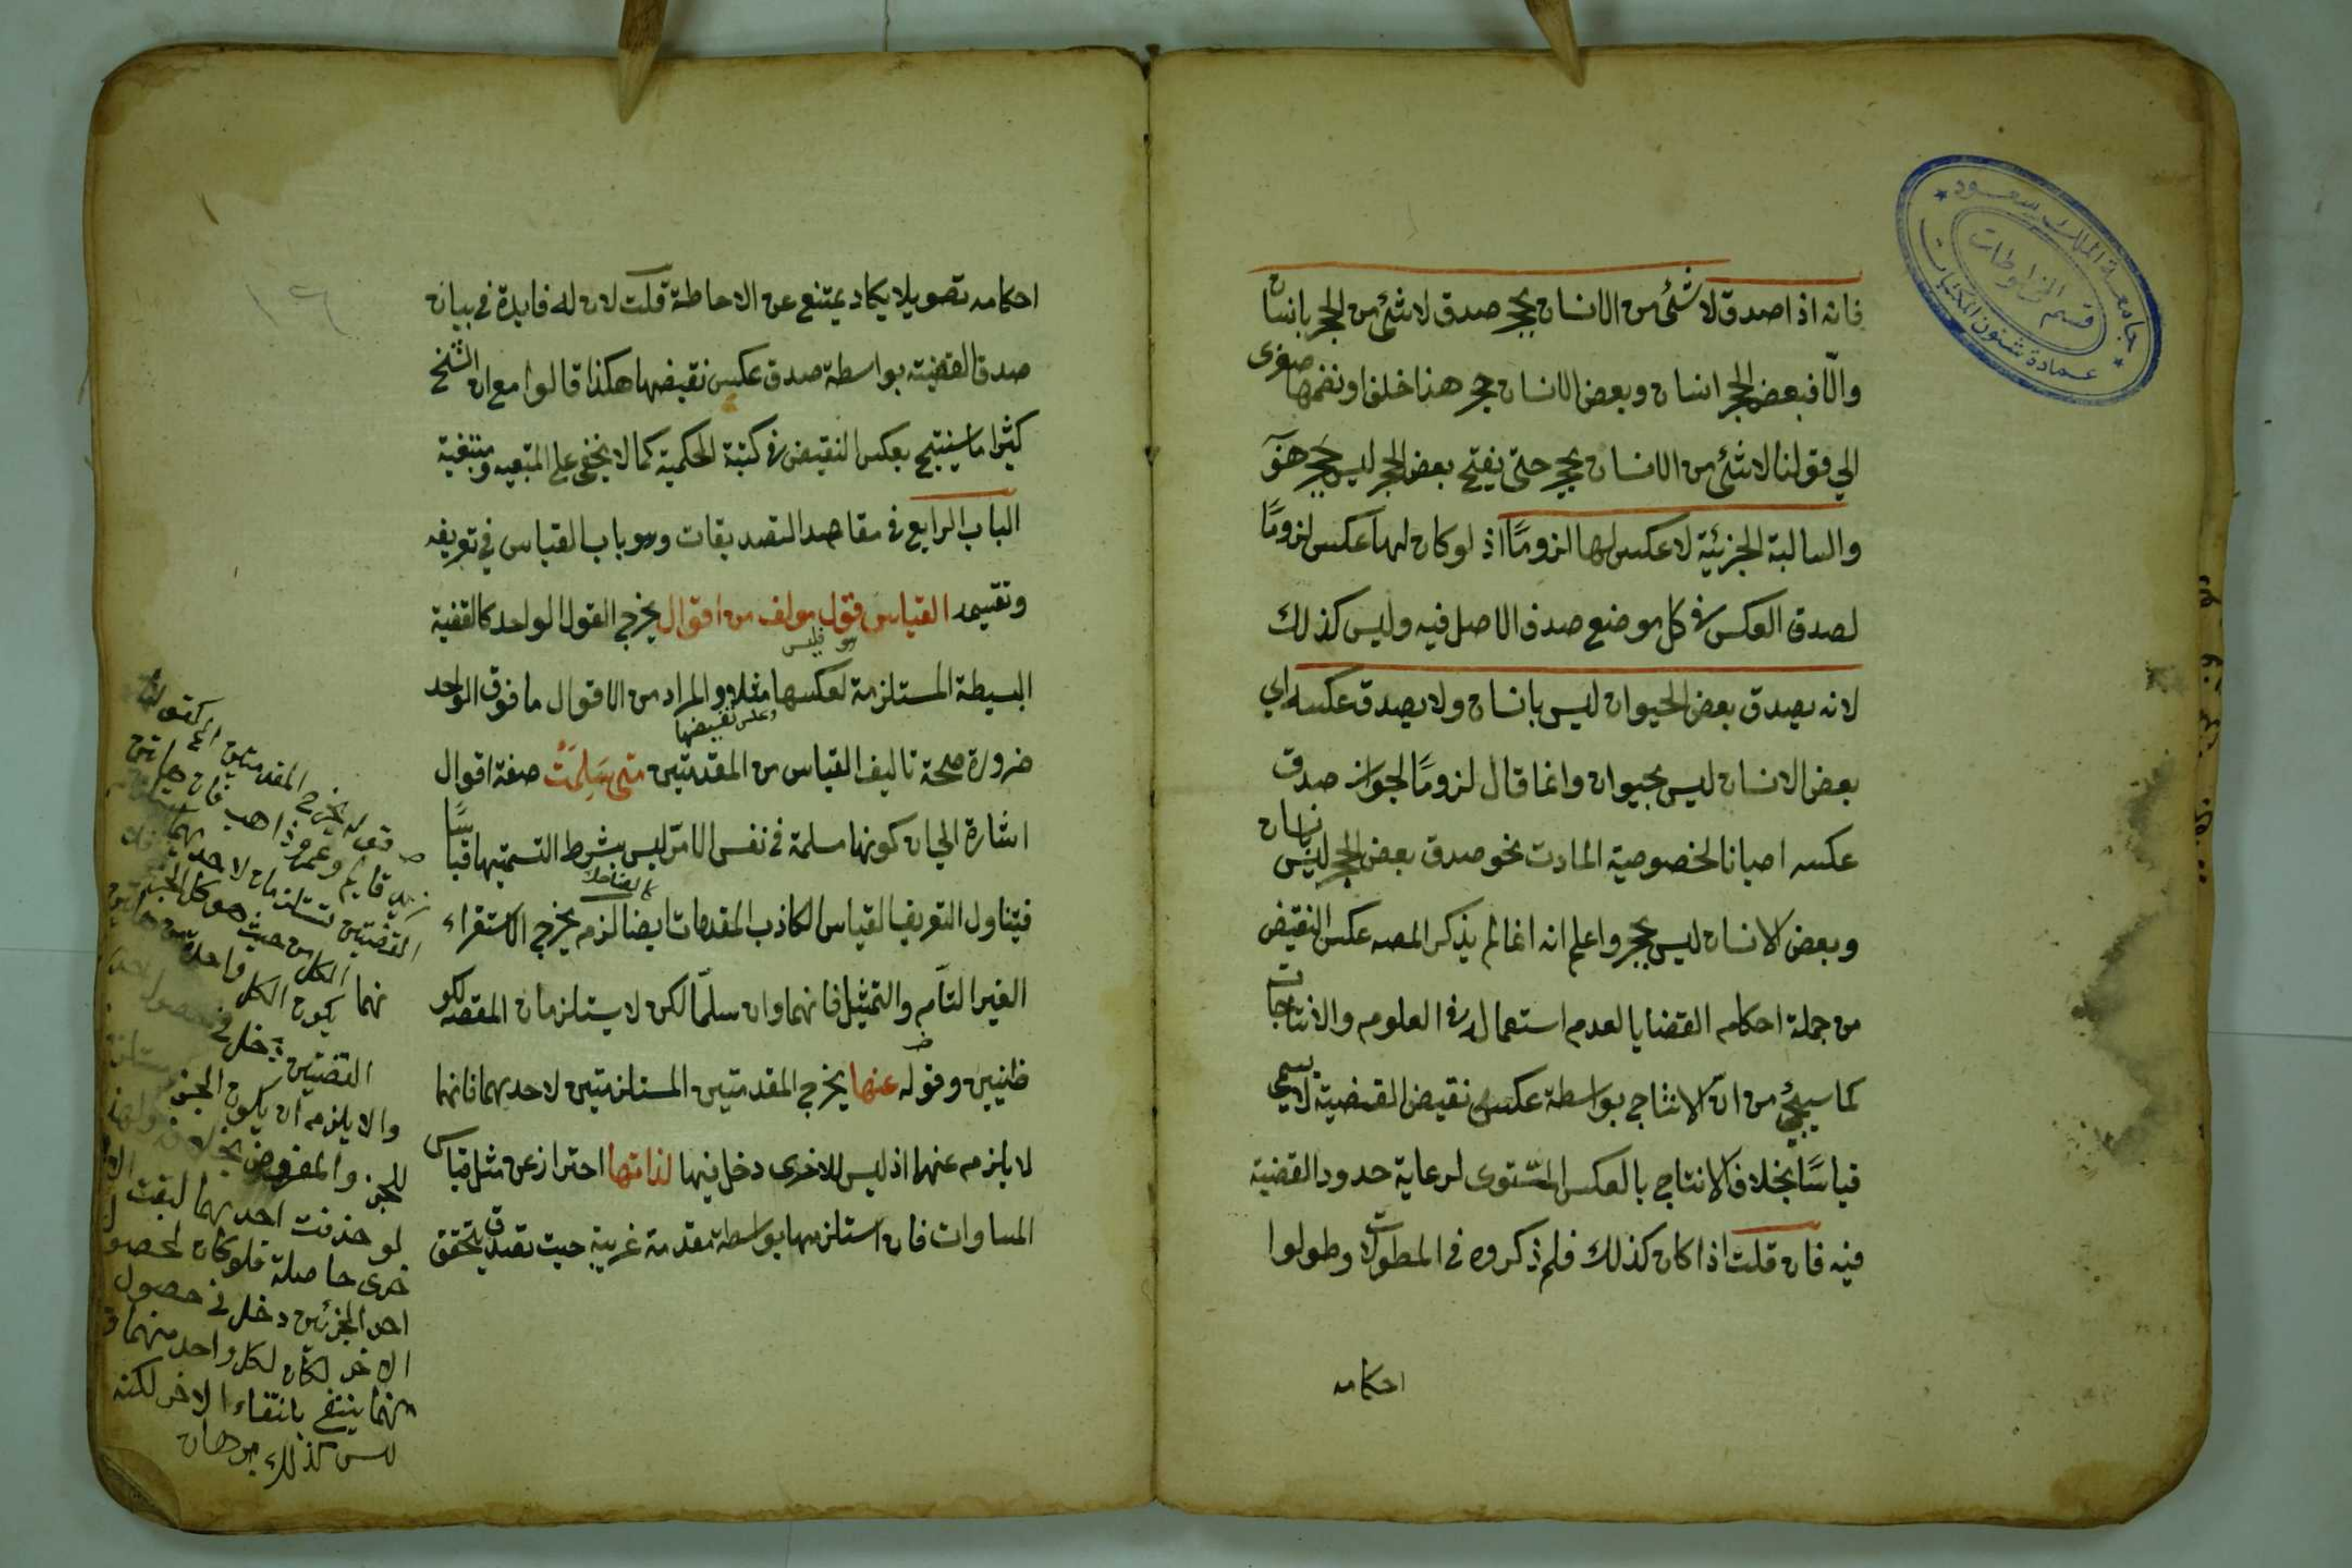 فانه اذا صدق لا شئ من الانسان بحجر صدق لا شئ من الحجر بانسان
والّا فبعض الحجر انسان وبعض الانسان حجر هذا خلف او نضمها صغرى
الى قولنا لا شئ من الانسان بحجر حتى ينتج بعض الحجر ليس بحجر هف
والسالبة الجزئية لا عكس لها لزومًا اذ لو كان لها عكس لزومًا
لصدق العكس في كل موضع صدق الاصل فيه وليس كذلك
لانه يصدق بعض الحيوان ليس بانسان ولا يصدق عكسه اي
بعض الانسان ليس بحيوان وانما قال لزومًا لجواز صدق
عكسه احيانا لخصوصية المادت نحو صدق بعض الحجر ليس بانسان
وبعض الانسان ليس بحجر واعلم انه انما لم يذكر المصه عكس النقيض
من جملة احكام القضايا لعدم استعماله في العلوم والانتاجات
كما سيجئ من ان الانتاج بواسطة عكس نقيض القضية لا يسمى
قياسًا بخلاف الانتاج بالعكس المستوى لرعاية حدود القضية
فيه فان قلت اذا كان كذلك فلم ذكروه في المطولات وطولوا
احكامه
جامعة الملك سعود
قسم المخطوطات
عمادة شئون المكتبات
١٦
احكامه تطويلا يكاد يمتنع عن الاحاطة قلت لان له فايدة في بيان
صدق القضية بواسطة صدق عكس نقيضها هكذا قالوا مع ان الشيخ
كثيرا ما ينتج بعكس النقيض في كتبه الحكمية كما لا يخفى على
الباب الرابع في مقاصد التصديقات وهو باب القياس في تعريفه
وتقسيمه القياس قول مولف من اقوال يخرج القول الواحد كالقضية
البسيطة المستلزمة لعكسها مثلا والمراد من الاقوال ما فوق الواحد
وعكس نقيضها
ضرورة صحة تاليف القياس من المقدمتين متى سَلِمَتْ صفة اقوال
اشارة الى ان كونها مسلمة في نفس الامر ليس بشرط التسميتها قياسًا
فيتناول التعريف القياس الكاذب المقدمات ايضا لزم يخرج الاستقراء
الغير التام والتمثيل فانهما وان سلّما لكن لا يستلزمان المقصه لكو
ظنيين وقوله عنها يخرج المقدمتين المستلزمتين لاحديهما فانهما
لا يلزم عنهما اذ ليس للاخرى دخل فيها لذاتها احتراز عن مثل قياس
المساوات فان استلزمها بواسطة مقدمة غريبة حيث تصدق يتحقق
قوله يخرج المقدمتين الخ كقولنا
زيد قايم وعمرو ذاهب فان هاتين
القضيتين تستلزمان لاحديهما
الكل من حيث هو كل
يكون الكل واحد من هاتين
القضيتين دخل في حصول
والا يلزم ان يكون الجزء
للجزء والمفروض بخلافه
لو حذفت احديهما لبقت الا
خرى حاصلة فلو كان لحصول
احد الجزئين دخل في حصول
الاخر لكان لكل واحد منهما
منهما ينتفي بانتفاء الاخر لكنه
ليس كذلك برهان